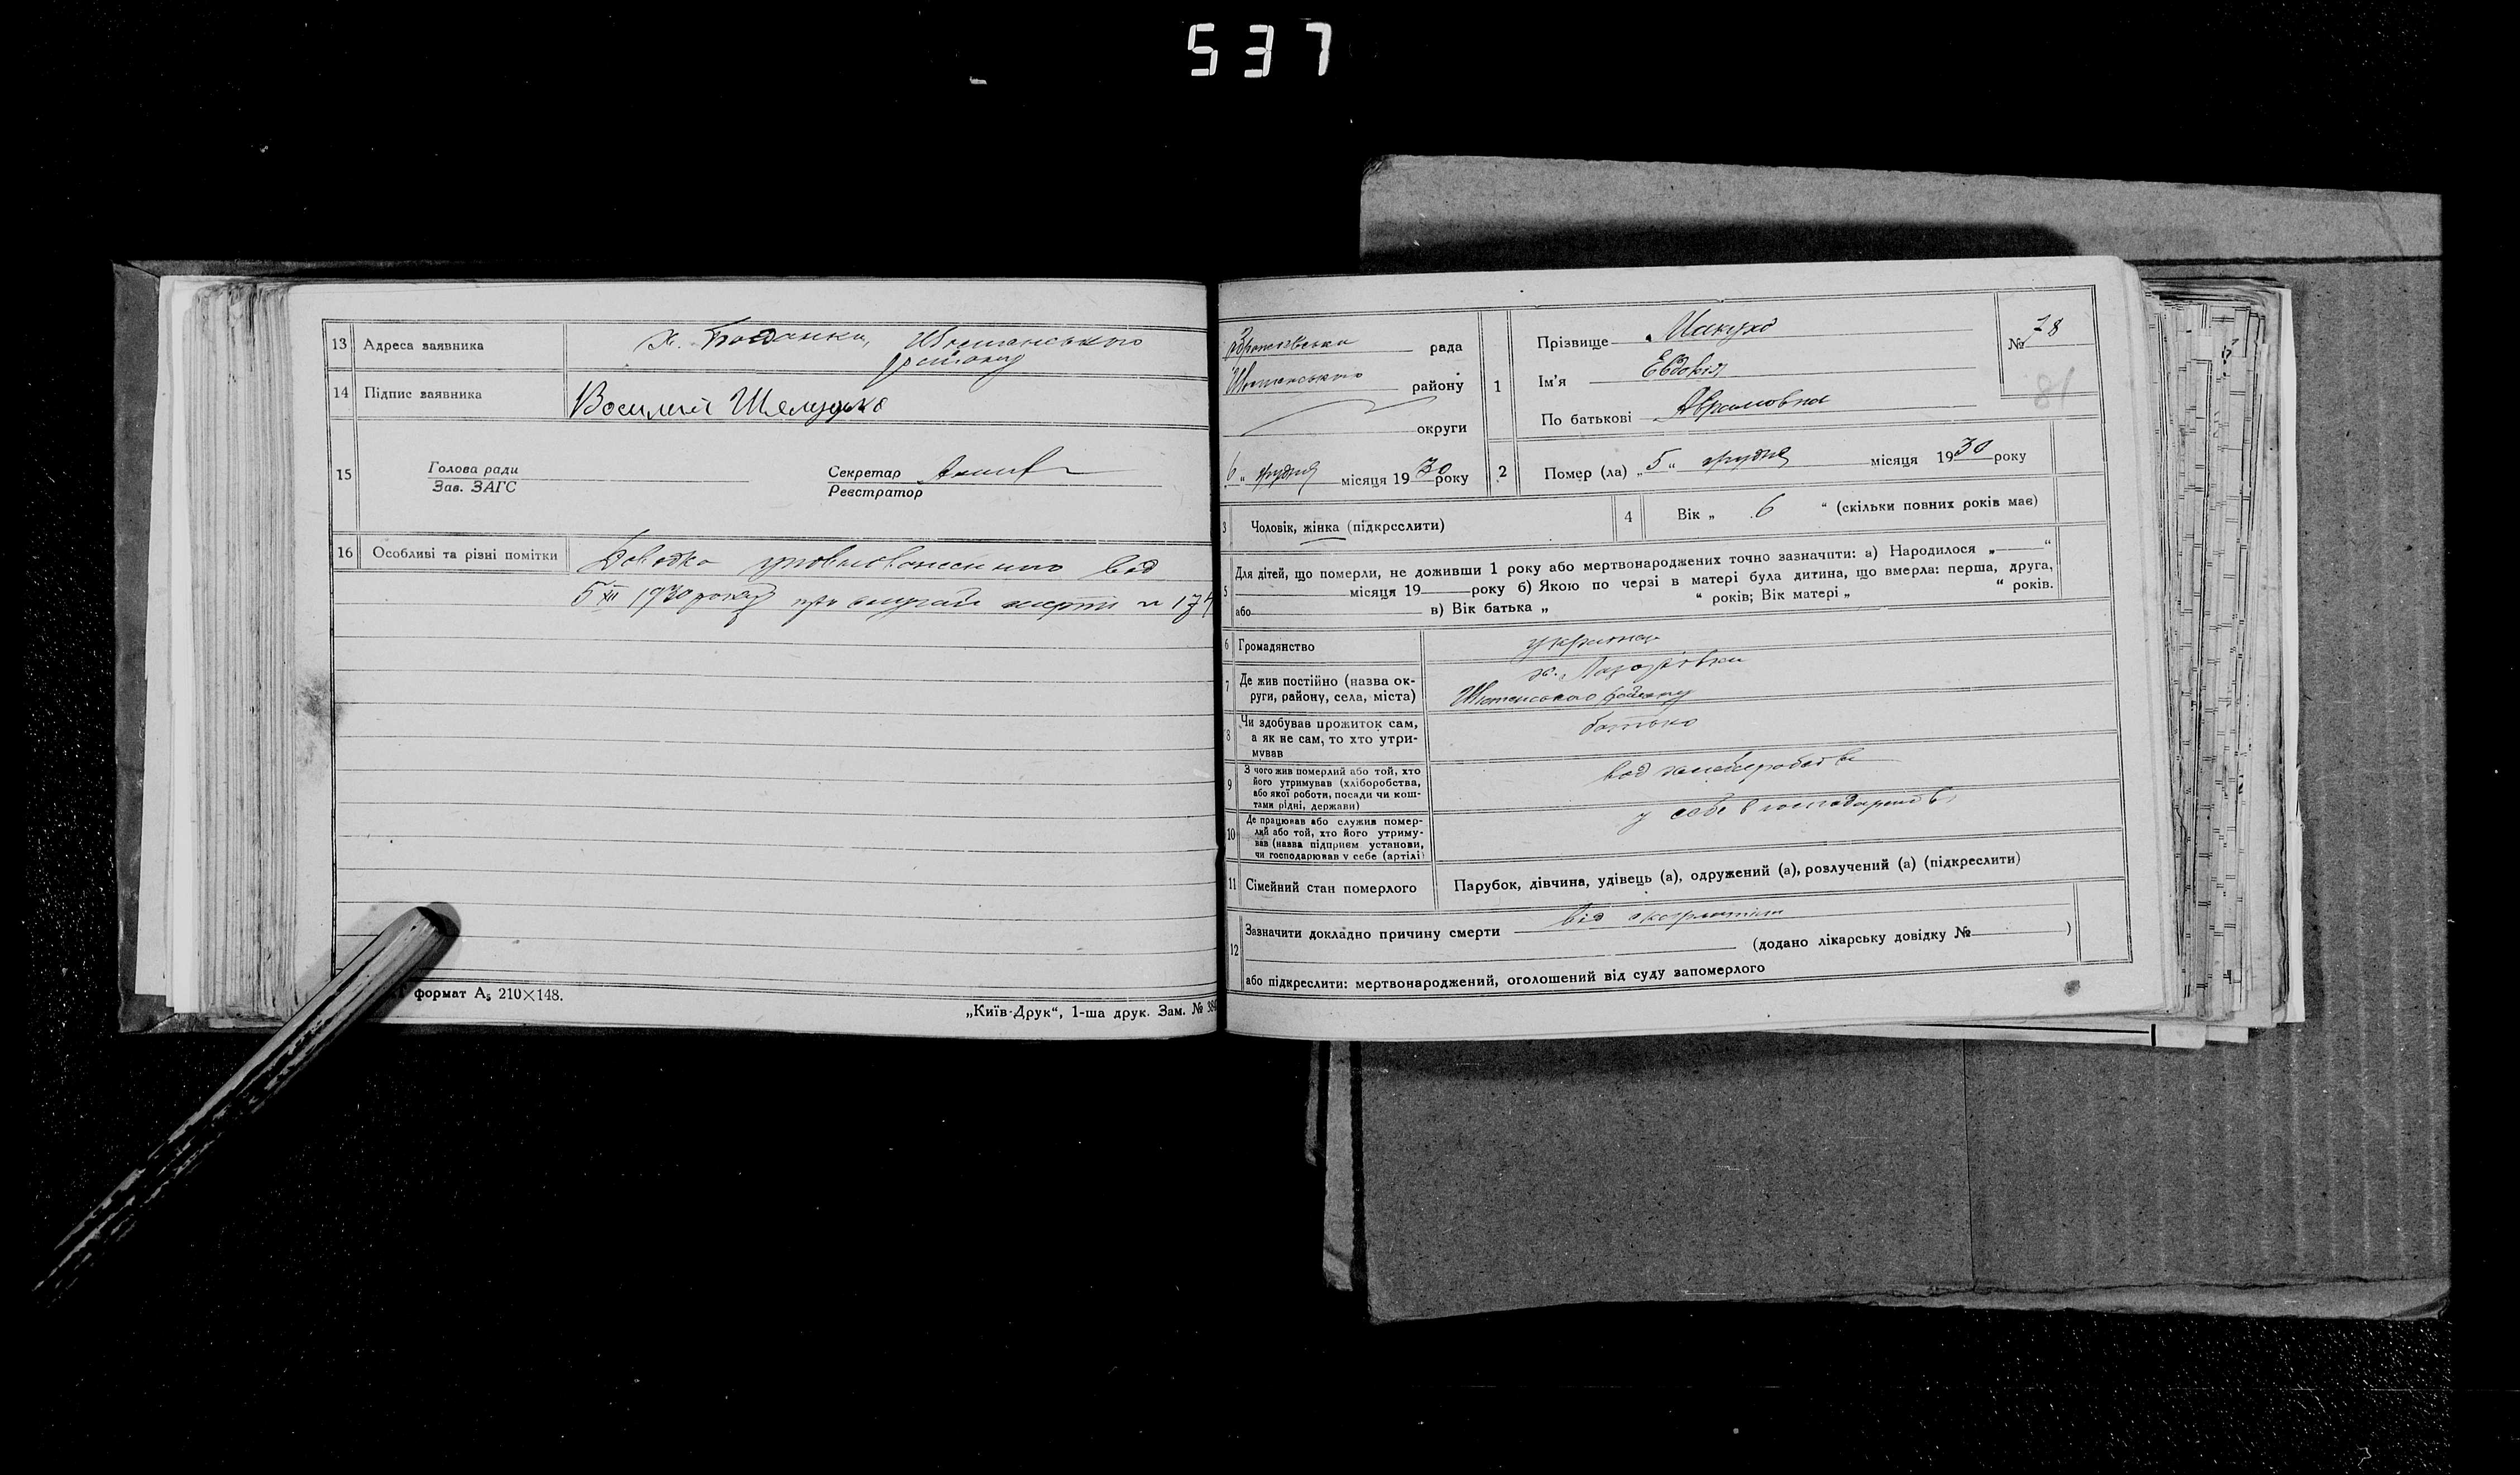 537
13 Адреса заявника х. Богданка,
району
14 Підпис заявника Василий Шелудько
15 Голова ради
Зав. ЗАГС
Секретар
Реєстратор
16 Особливі та різні помітки Довідка уповноваженого від
5 XII 1930 року про випадки смерти
формат А₅ 210×148.
„Київ-Друк“, 1-ша друк. Зам. №
рада
району
округи
6 „ грудня місяця 1930 року
1 Прізвище
Ім'я Евдокія
По батькові Аврамовна
№ 78
81
2 Помер (ла) „ 5 “ грудня місяця 1930 року
3 Чоловік, жінка (підкреслити)
4 Вік „ 6 “ (скільки повних років має)
5 Для дітей, що померли, не доживши 1 року або мертвонароджених точно зазначити: а) Народилося „ “
місяця 19 року б) Якою по черзі в матері була дитина, що вмерла: перша, друга,
або в) Вік батька „ “ років; Вік матері „ “ років.
6 Громадянство
7 Де жив постійно (назва ок-
руги, району, села, міста)
району
8 Чи здобував прожиток сам,
а як не сам, то хто утри-
мував
батько
9 З чого жив померлий або той, хто
його утримував (хліборобства,
або якої роботи, посади чи кош-
тами рідні, держави)
від
10 Де працював або служив помер-
лий або той, хто його утриму-
вав (назва підприєм установи,
чи господарював у себе (артілі)
у себе в господарстві
11 Сімейний стан померлого Парубок, дівчина, удівець (а), одружений (а), розлучений (а) (підкреслити)
12 Зазначити докладно причину смерти від скорлатіни
(додано лікарську довідку № )
або підкреслити: мертвонароджений, оголошений від суду запомерлого